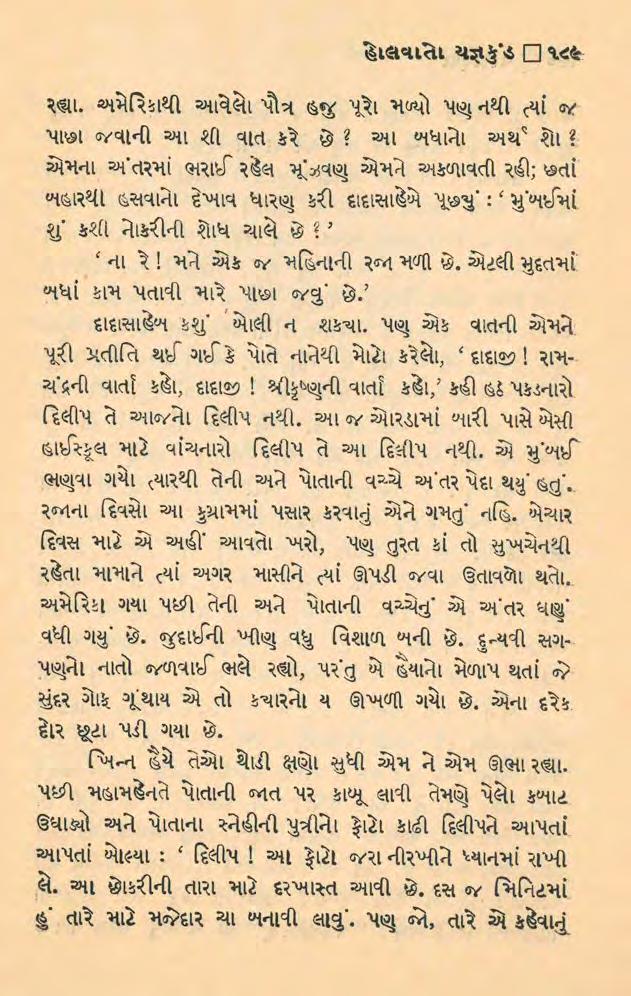 હોલવાતો યજ્ઞકુંડ □ ૧૮૯
રહ્યા. અમેરિકાથી આવેલો પૌત્ર હજુ પૂરો મળ્યો પણ નથી ત્યાં જ
પાછા જવાની આ શી વાત કરે છે ? આ બધાનો અર્થ શો ?
એમના અંતરમાં ભરાઈ રહેલ મૂંઝવણ એમને અકળાવતી રહી; છતાં
બહારથી હસવાનો દેખાવ ધારણ કરી દાદાસાહેબે પૂછ્યું : ‘ મુંબઈમાં
શું કશી નોકરીની શોધ ચાલે છે ? ’
‘ ના રે ! મને એક જ મહિનાની રજા મળી છે. એટલી મુદતમાં
બધાં કામ પતાવી મારે પાછા જવું છે.’
દાદાસાહેબ કશું બોલી ન શક્યા. પણ એક વાતની એમને
પૂરી પ્રતીતિ થઈ ગઈ કે પોતે નાનેથી મોટો કરેલો, ‘ દાદાજી ! રામ-
ચંદ્રની વાર્તા કહો, દાદાજી ! શ્રીકૃષ્ણની વાર્તા કહો,’ કહી હઠ પકડનારો
દિલીપ તે આજનો દિલીપ નથી. આ જ ઓરડામાં બારી પાસે બેસી
હાઈસ્કૂલ માટે વાંચનારો દિલીપ તે આ દિલીપ નથી. એ મુંબઈ
ભણવા ગયો ત્યારથી તેની અને પોતાની વચ્ચે અંતર પેદા થયું હતું.
રજાના દિવસો આ કુગ્રામમાં પસાર કરવાનું એને ગમતું નહિ. બેચાર
દિવસ માટે એ અહીં આવતો ખરો, પણ તુરત કાં તો સુખચેનથી
રહેતા મામાને ત્યાં અગર માસીને ત્યાં ઊપડી જવા ઉતાવળો થતો.
અમેરિકા ગયા પછી તેની અને પોતાની વચ્ચેનું એ અંતર ઘણું
વધી ગયું છે. જુદાઈની ખીણ વધુ વિશાળ બની છે. દુન્યવી સગ-
પણનો નાતો જળવાઈ ભલે રહ્યો, પરંતુ બે હૈયાનો મેળાપ થતાં જે
સુંદર ગોફ ગૂંથાય એ તો ક્યારનો ય ઊખળી ગયો છે. એના દરેક
દોર છૂટા પડી ગયા છે.
ખિન્ન હૈયે તેઓ થોડી ક્ષણો સુધી એમ ને એમ ઊભા રહ્યા.
પછી મહામહેનતે પોતાની જાત પર કાબૂ લાવી તેમણે પેલો કબાટ
ઉઘાડ્યો અને પોતાના સ્નેહીની પુત્રીનો ફોટો કાઢી દિલીપને આપતાં
આપતાં બોલ્યા : ‘ દિલીપ ! આ ફોટો જરા નીરખીને ધ્યાનમાં રાખી
લે. આ છોકરીની તારા માટે દરખાસ્ત આવી છે. દસ જ મિનિટમાં
હું તારે માટે મજેદાર ચા બનાવી લાવું. પણ જો, તારે એ કહેવાનું